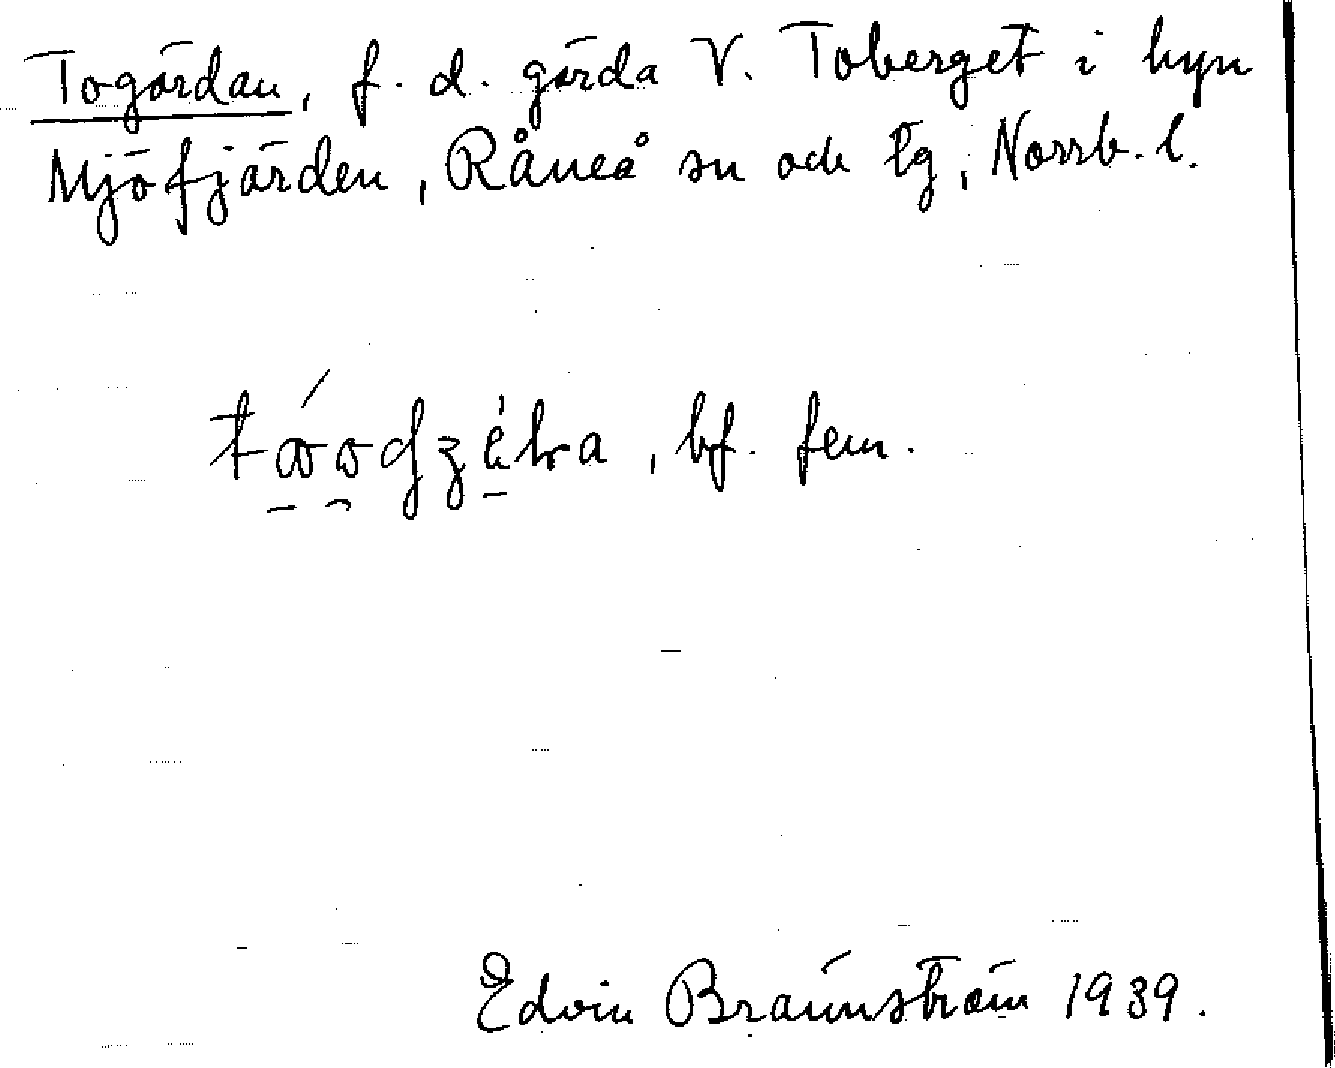 Togärdan, f. d. gärda V. Toberget i byn
Mjöfjärden, Råneå sn och tg, Norrb. l.
bf. fem.
Edvin Brännström 1939.